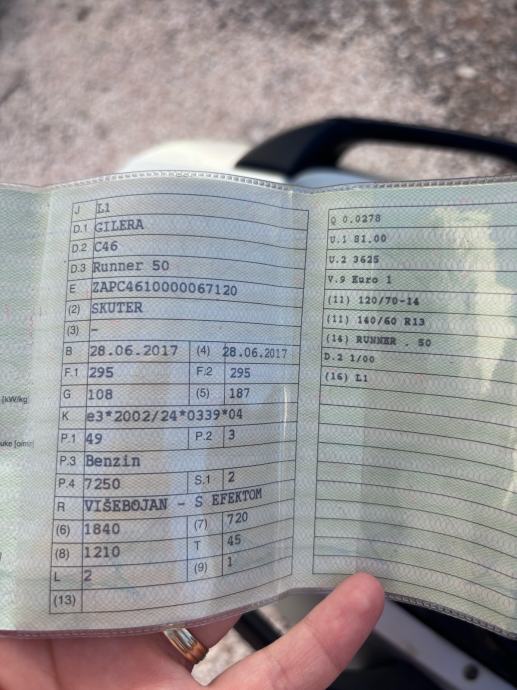 J L1
D.1 GILERA
D.2 C46
D.3 Runner 50
E ZAPC4610000067120
(2) SKUTER
(3) -
B 28.06.2017 (4) 28.06.2017
F.1 295 F.2 295
G 108 (5) 187
K e3*2002/24*0339*04
P.1 49 P.2 3
P.3 Benzin
P.4 7250 S.1 2
R VIŠEBOJAN - S EFEKTOM
(6) 1840 (7) 720
(8) 1210 T 45
L 2 (9) 1
(13)
[kW/kg]
Q 0.0278
U.1 81.00
U.2 3625
V.9 Euro 1
(11) 120/70-14
(11) 140/60 R13
(14) RUNNER . 50
D.2 1/00
(16) L1